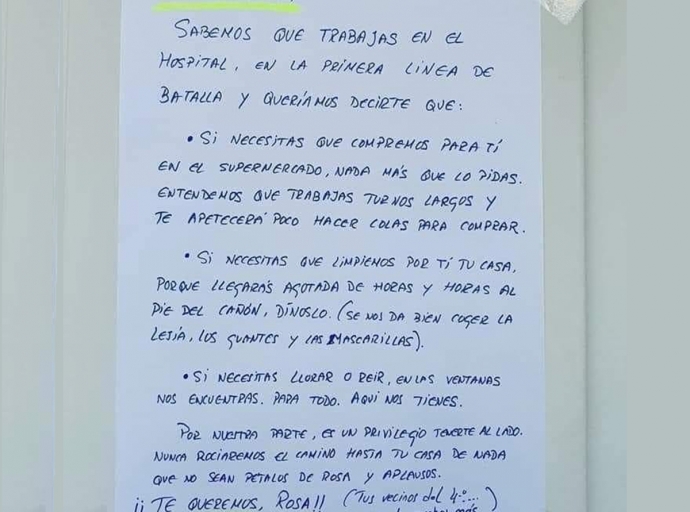 SABEMOS QUE TRABAJAS EN EL
HOSPITAL, EN LA PRIMERA LÍNEA DE
BATALLA Y QUERÍAMOS DECIRTE QUE:
• SI NECESITAS QUE COMPREMOS PARA TÍ
EN EL SUPERMERCADO, NADA MÁS QUE LO PIDAS.
ENTENDEMOS QUE TRABAJAS TURNOS LARGOS Y
TE APETECERÁ POCO HACER COLAS PARA COMPRAR.
• SI NECESITAS QUE LIMPIEMOS POR TÍ TU CASA,
PORQUE LLEGARÁS AGOTADA DE HORAS Y HORAS AL
PIE DEL CAÑÓN, DÍNOSLO. (SE NOS DA BIEN COGER LA
LEJÍA, LOS GUANTES Y LAS MASCARILLAS).
• SI NECESITAS LLORAR O REIR, EN LAS VENTANAS
NOS ENCUENTRAS. PARA TODO. AQUÍ NOS TIENES.
POR NUESTRA PARTE, ES UN PRIVILEGIO TENERTE AL LADO.
NUNCA ROCIAREMOS EL CAMINO HASTA TU CASA DE NADA
QUE NO SEAN PETALOS DE ROSA Y APLAUSOS.
¡¡ TE QUEREMOS, ROSA!! (Tus vecinos del 4º...)